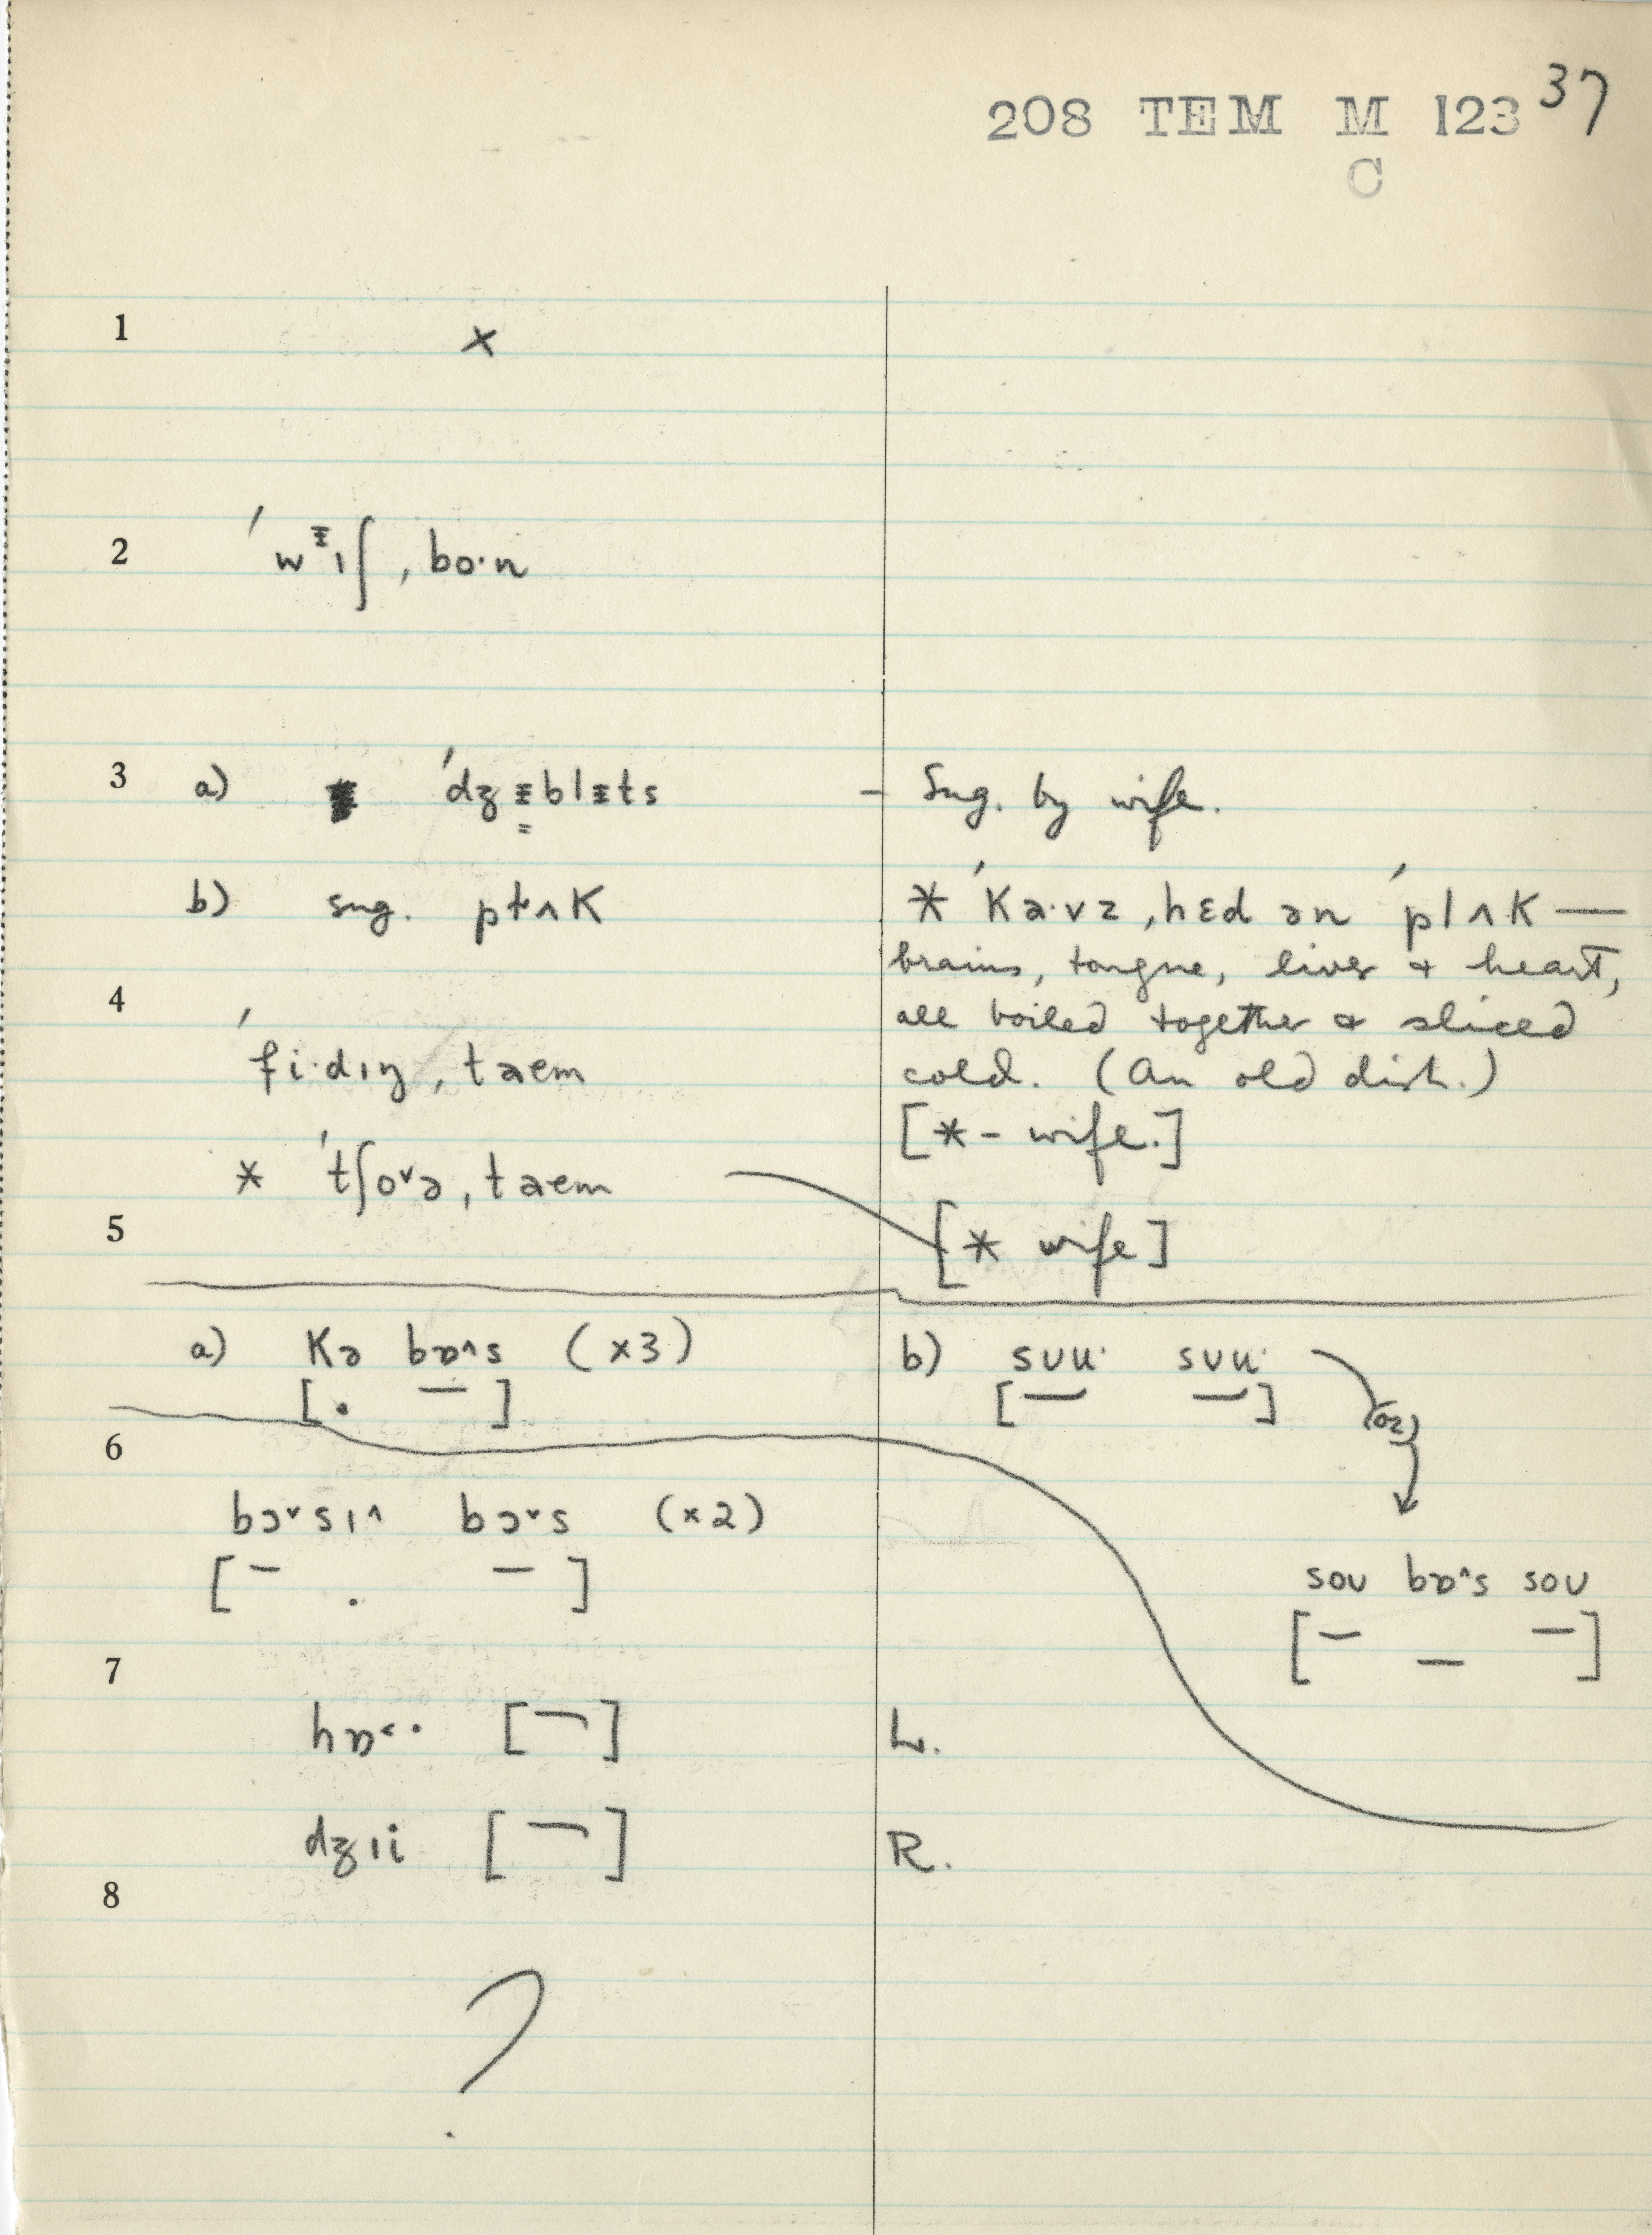 37
208 TEM M 123
C
1 ×
2 ˈwᵻɪʃ ˌbo·n
3 a) ˈdʒᵻblᵻts – Sug. by wife.
b) sug. plʌk
* ˈkɑ·vz ˌhɛd ən ˈplʌk —
brains, tongue, liver & heart,
all boiled together & sliced
cold. (An old dish.)
[* – wife.]
4
ˈfi·dɪŋ ˌtaem
* ˈtʃoˇə ˌtaem
[* wife]
5
a) kə bɒ^s (×3)
[. –]
b) sʊu· sʊu·
[– –]
(or)
sou bɒ^s sou
[– – –]
6
bɔˇsɪ^ bɔˇs (×2)
[– . –]
7
hɒ˂· [¬] L.
dʒɪi [¬] R.
8
?